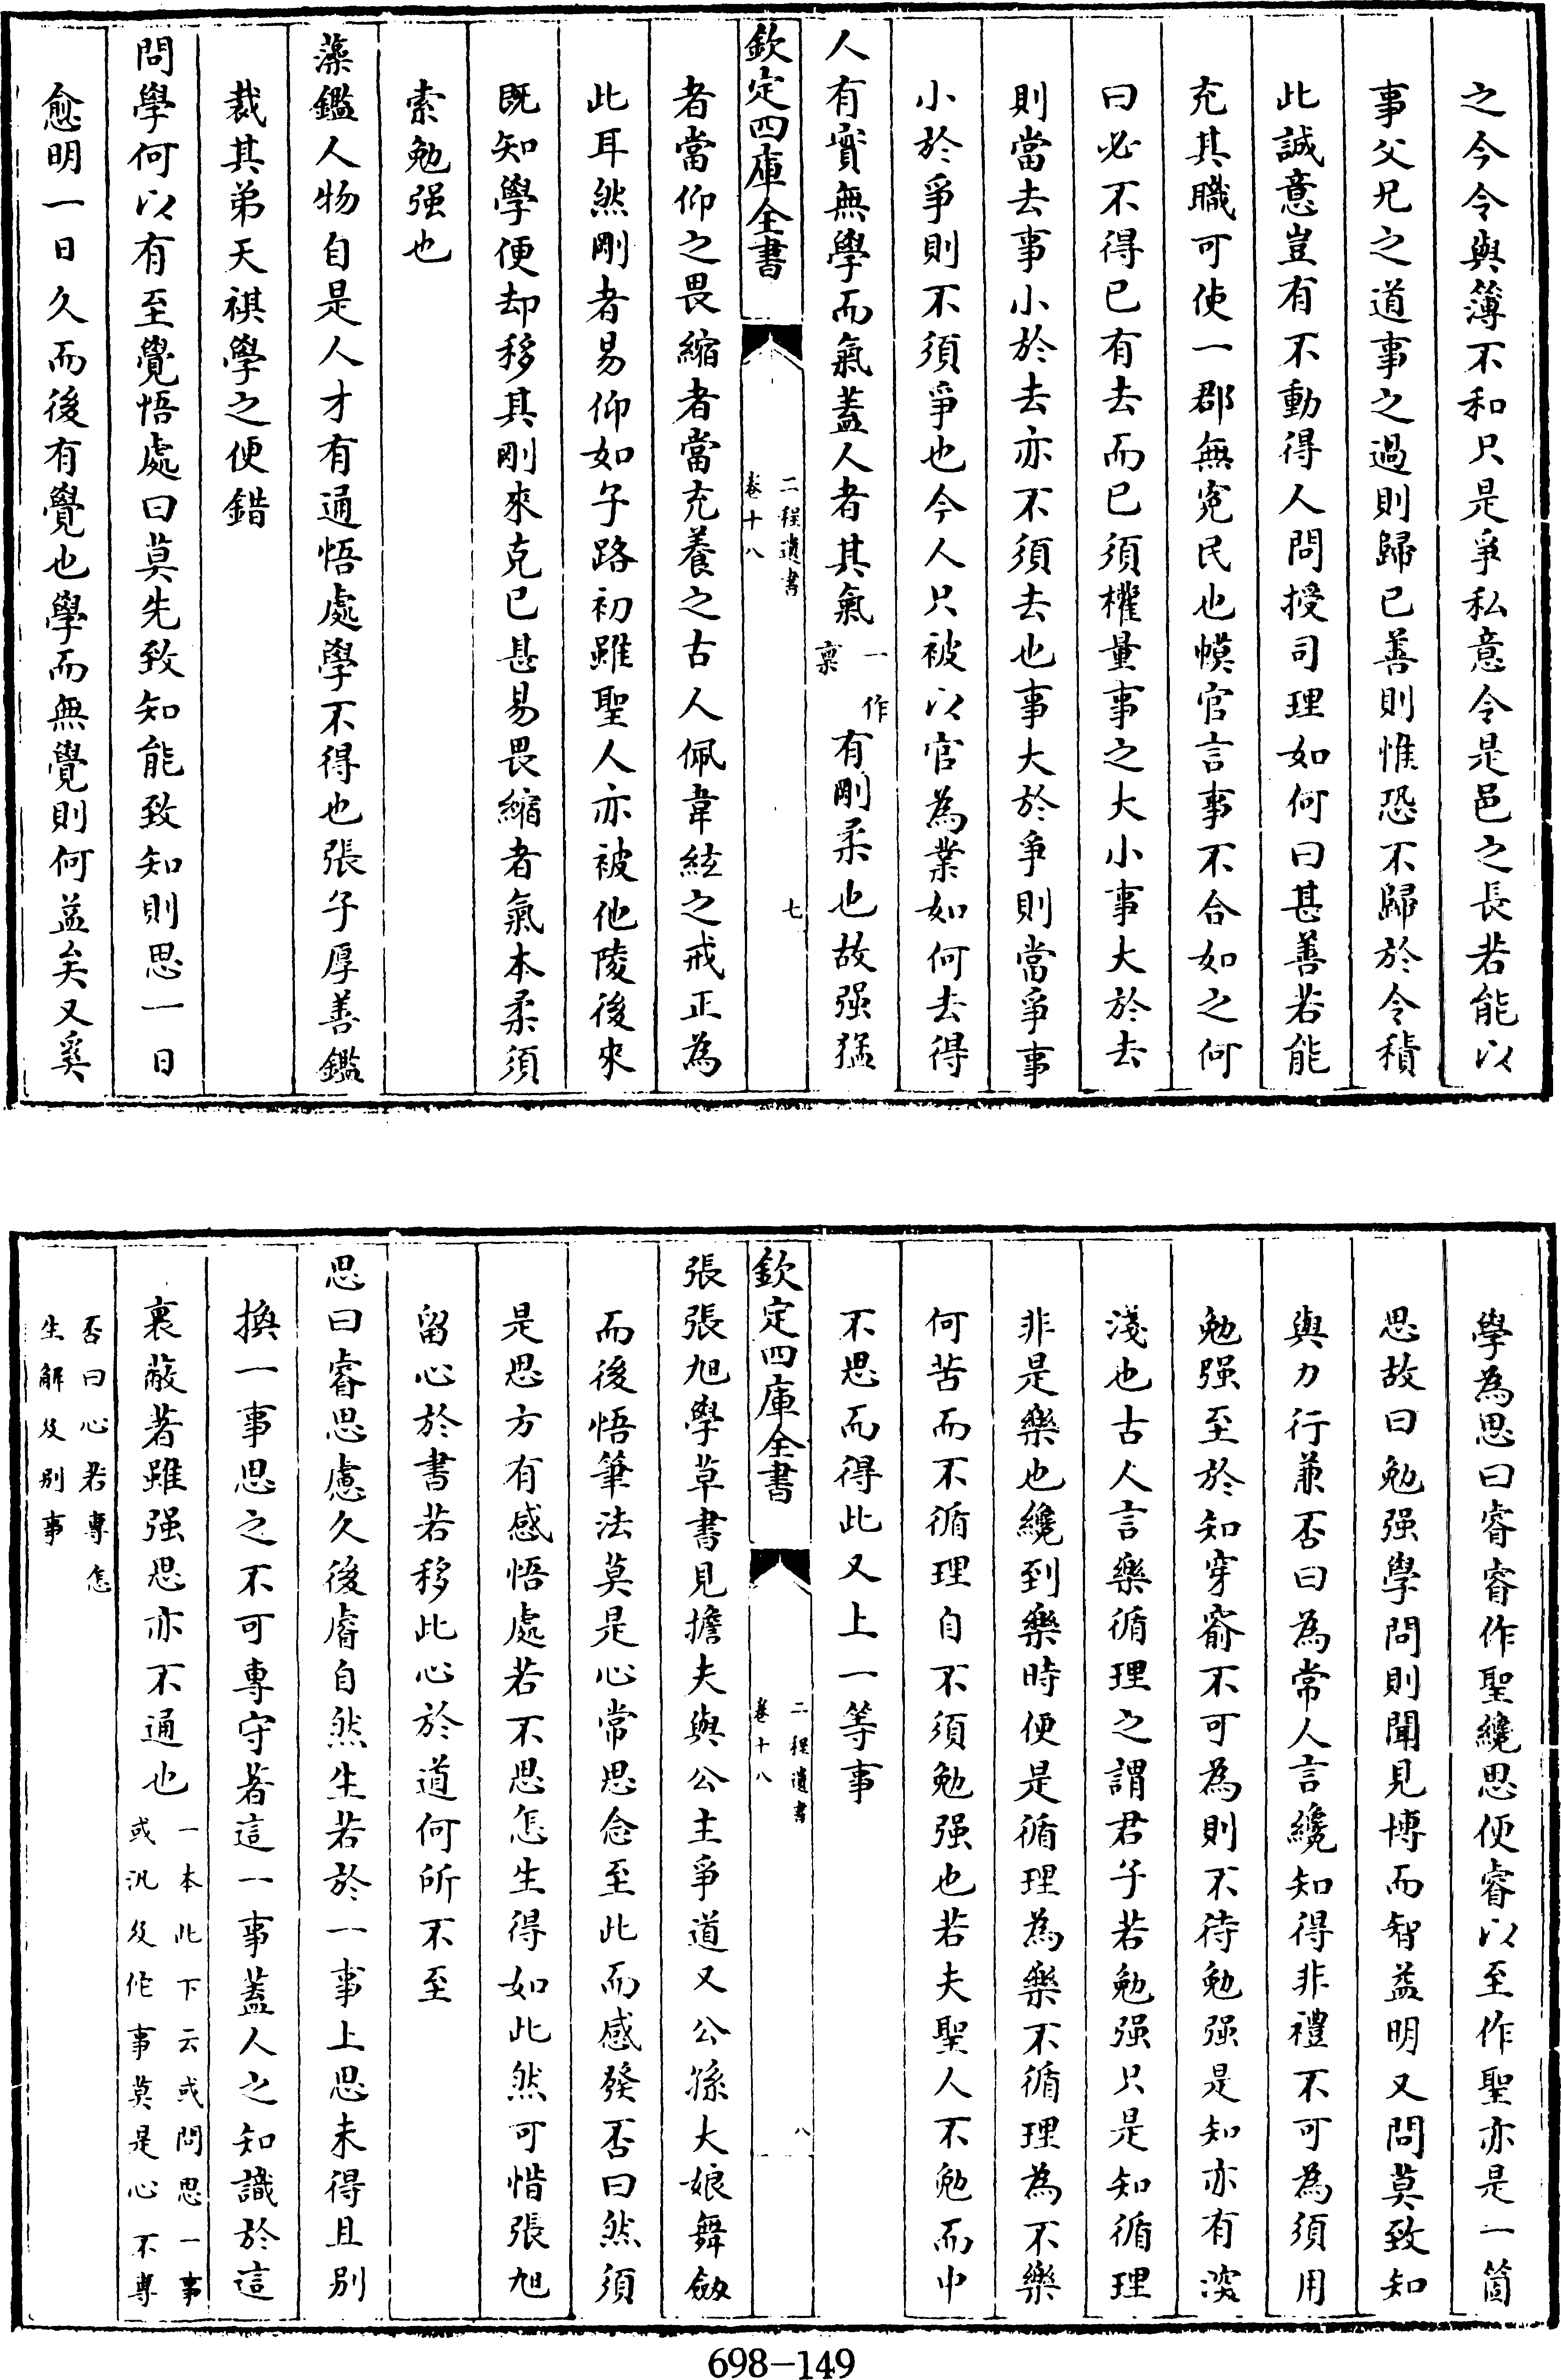 之今令與簿不和只是爭私意令是邑之長若能以
事父兄之道事之過則歸已善則惟恐不歸於令積
此誠意豈有不動得人問授司理如何曰甚善若能
充其職可使一郡無寃民也幙官言事不合如之何
曰必不得已有去而已須權量事之大小事大於去
則當去事小於去亦不須去也事大於爭則當爭事
小於爭則不須爭也今人只被以官為業如何去得
人有實無學而氣葢人者其氣一作禀有剛柔也故强猛
欽定四庫全書
二程遺書
卷十八
七
者當仰之畏縮者當充養之古人佩韋絃之戒正為
此耳然剛者易仰如子路初雖聖人亦被他陵後來
既知學便却移其剛來克已甚易畏縮者氣本柔須
索勉强也
藻鑑人物自是人才有通悟處學不得也張子厚善鑑
裁其弟天祺學之便錯
問學何以有至覺悟處曰莫先致知能致知則思一日
愈明一日久而後有覺也學而無覺則何益矣又奚
學為思曰睿睿作聖纔思便睿以至作聖亦是一箇
思故曰勉强學問則聞見博而智益明又問莫致知
與力行兼否曰為常人言纔知得非禮不可為須用
勉强至於知穿窬不可為則不待勉强是知亦有深
淺也古人言樂循理之謂君子若勉强只是知循理
非是樂也纔到樂時便是循理為樂不循理為不樂
何苦而不循理自不須勉强也若夫聖人不勉而中
不思而得此又上一等事
欽定四庫全書
二程遺書
卷十八
八
張張旭學草書見擔夫與公主爭道又公孫大娘舞劒
而後悟筆法莫是心常思念至此而感發否曰然須
是思方有感悟處若不思怎生得如此然可惜張旭
留心於書若移此心於道何所不至
思曰睿思慮久後睿自然生若於一事上思未得且别
換一事思之不可專守著這一事蓋人之知識於這
裏蔽著雖强思亦不通也一本此下云或問思一事
或汎及佗事莫是心不專
否曰心若專怎
生解及别事
698-149